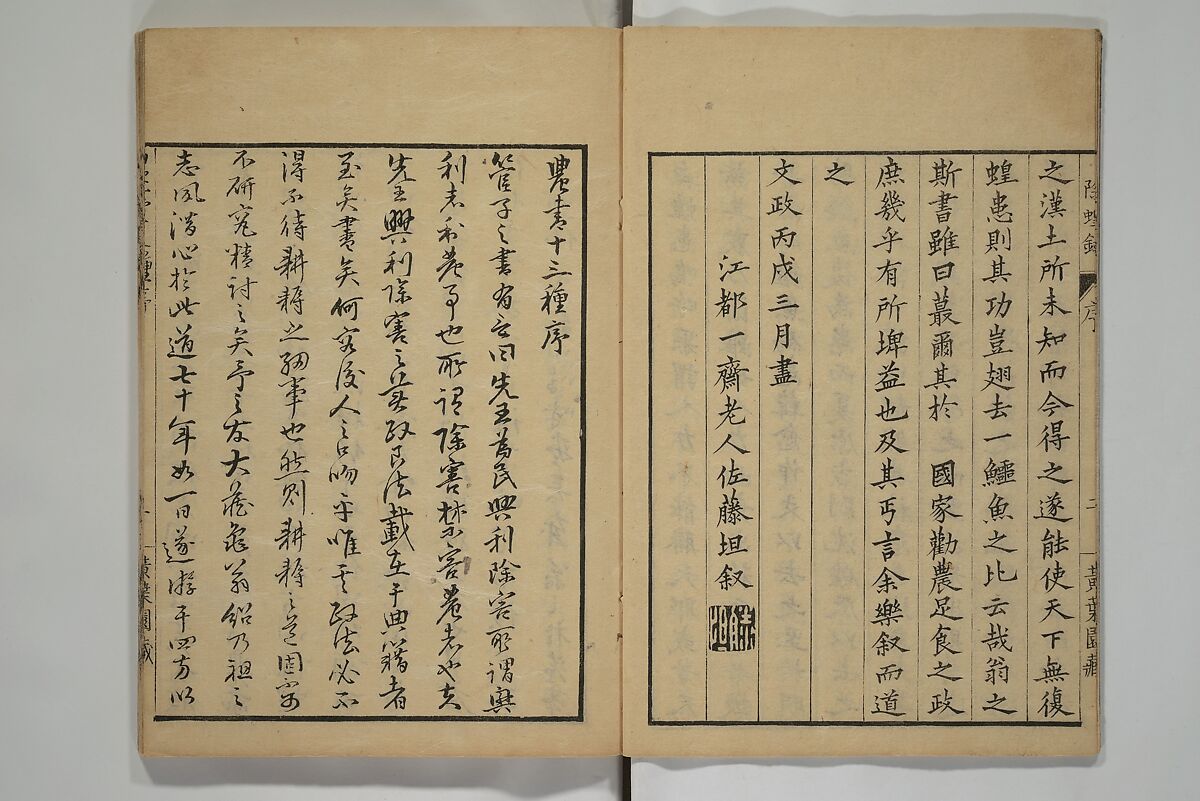 除蝗錄 序 二 黄葉園藏
之漢土所未知而今得之遂能使天下無復
蝗患則其功豈翅去一鱷魚之比云哉翁之
斯書雖曰蕞爾其於 國家勸農足食之政
庶幾乎有所埤益也及其丐言余樂叙而道
之
文政丙戌三月盡
江都一齋老人佐藤坦叙
農書十三種序
管子之書有言曰先王為民興利除害所謂興
利者利農事也所謂除害禁害農者也夫
先王興利除害之善政良法載在于典籍者
至矣盡矣何容後人之口吻乎唯其政法必不
得不待耕耨之細事也然則耕耨之道固
不研究精討之矣予之友大蔵龜翁紹乃祖之
志夙潜心於此道七十年如一日遂游于四方以
黄葉園藏